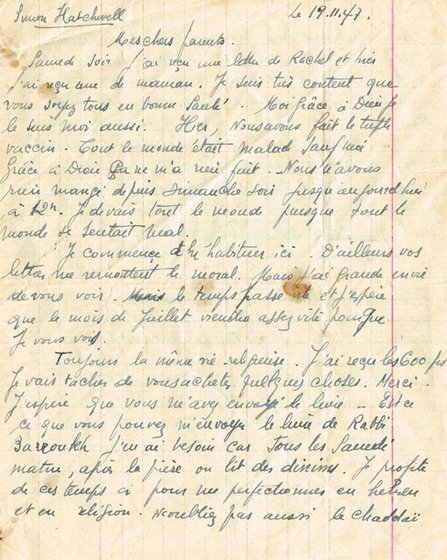 Simon Hatchwell
Le 19.11.47.
Mes chers parents.
Samedi soir j'ai reçu une lettre de Rachel et hier
j'ai reçu une de maman. Je suis très content que
vous soyez tous en bonne santé. Moi grâce à Dieu je
le suis moi aussi. Hier, nous avons fait le triple
vaccin. Tout le monde était malade sauf moi
Grâce à Dieu ça ne m'a rien fait. Nous n'avons
rien mangé depuis Dimanche soir jusqu'aujourd'hui
à 12h. Je devais tout le monde puisque tout le
monde se sentait mal.
Je commence à m'habituer ici. D'ailleurs vos
lettres me remontent le moral. Mais j'ai grande envie
de vous voir. Mais le temps passe vite et j'espère
que le mois de Juillet viendra assez vite pour que
Je vous vois.
Toujours la même vie religieuse. J'ai reçu les 600 frs
Je vais tâcher de vous acheter quelques choses. Merci.
J'espère que vous m'avez envoyé le livre - Est ce
ce que vous pouvez m'envoyer le livre de Rabbi
J'en ai besoin car tous les Samedi
matin, après la prière on lit des dinims. Je profite
de ces temps ci pour me perfectionner en hébreu
et en religion. N'oubliez pas aussi le chaddaï